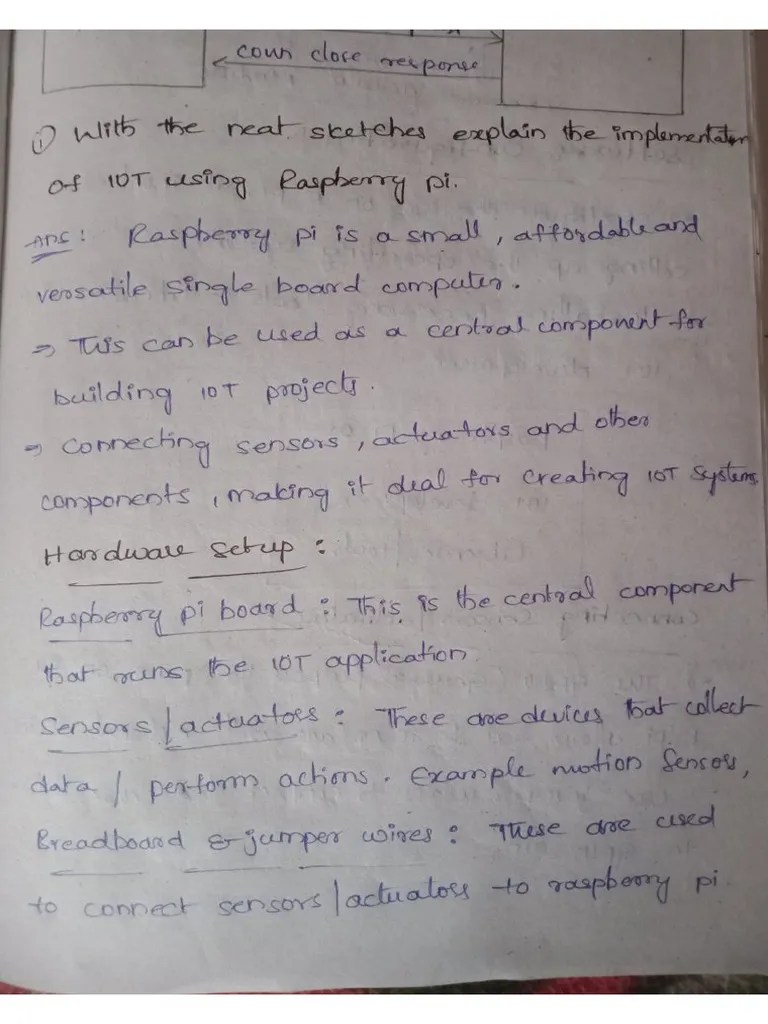 conn close response
i) With the neat sketches explain the implementation
of IOT using Raspberry pi.
Ans: Raspberry pi is a small, affordable and
versatile single board computer.
⇒ This can be used as a central component for
building IOT projects.
⇒ Connecting sensors, actuators and other
components, making it deal for creating IOT systems
Hardware Setup :
Raspberry pi board : This is the central component
that runs the IOT application.
Sensors/actuators : These are devices that collect
data / perform actions. Example motion Sensors,
Breadboard & jumper wires : These are used
to connect sensors/actuators to raspberry pi.